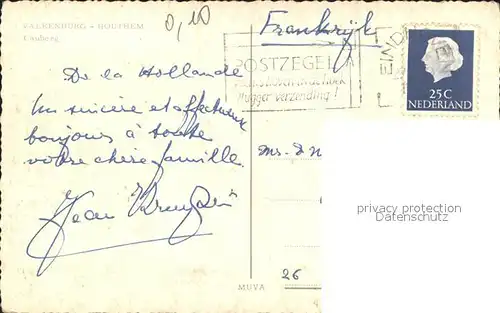 VALKENBURG - HOUTHEM
Cauberg
0,10
Frankrijk
POSTZEGELS
vlugger verzending!
EIND
25 C
NEDERLAND
De la Hollande
Un sincère et affectueux
bonjour à toute
votre chère famille.
Jean
Mrs. & 
privacy protection
Datenschutz
26
MUVA